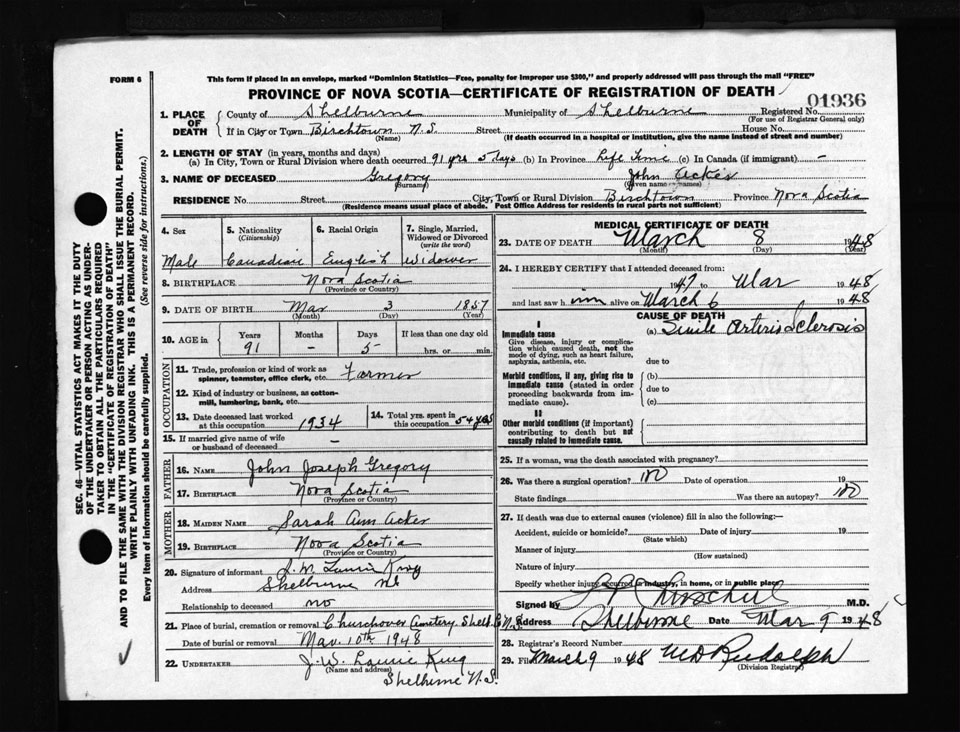 FORM 6
This form if placed in an envelope, marked "Dominion Statistics—Free, penalty for improper use $300," and properly addressed will pass through the mail "FREE"
PROVINCE OF NOVA SCOTIA—CERTIFICATE OF REGISTRATION OF DEATH
01936
1. PLACE OF DEATH
County of Shelburne Municipality of Shelburne Registered No.
(For use of Registrar General only)
If in City or Town Birchtown N.S. Street House No.
(Name) (If death occurred in a hospital or institution, give the name instead of street and number)
2. LENGTH OF STAY (in years, months and days)
(a) In City, Town or Rural Division where death occurred 91 yrs 5 days (b) In Province Life Time (c) In Canada (if immigrant) -
3. NAME OF DECEASED Gregory John Acker
(Surname) (Given name or names)
RESIDENCE No. Street City, Town or Rural Division Birchtown Province Nova Scotia
(Residence means usual place of abode. Post Office Address for residents in rural parts not sufficient)
4. Sex Male
5. Nationality (Citizenship) Canadian
6. Racial Origin English
7. Single, Married, Widowed or Divorced (write the word) Widower
8. BIRTHPLACE Nova Scotia
(Province or Country)
9. DATE OF BIRTH Mar 3 1857
(Month) (Day) (Year)
10. AGE in Years 91 Months - Days 5 If less than one day old hrs. or min.
OCCUPATION
11. Trade, profession or kind of work as spinner, teamster, office clerk, etc. Farmer
12. Kind of industry or business, as cotton-mill, lumbering, bank, etc.
13. Date deceased last worked at this occupation 1934
14. Total yrs. spent in this occupation 54 yrs
15. If married give name of wife or husband of deceased -
FATHER
16. NAME John Joseph Gregory
17. BIRTHPLACE Nova Scotia
(Province or Country)
MOTHER
18. MAIDEN NAME Sarah Ann Acker
19. BIRTHPLACE Nova Scotia
(Province or Country)
20. Signature of informant J. W. Laurie King
Address Shelburne NS
Relationship to deceased no
21. Place of burial, cremation or removal Churchover Cemetery. Shelb. Co N.S.
Date of burial or removal Mar. 10th 1948
22. UNDERTAKER J. W. Laurie King
(Name and address)
Shelburne N.S.
MEDICAL CERTIFICATE OF DEATH
23. DATE OF DEATH March 8 1948
(Month) (Day)
24. I HEREBY CERTIFY that I attended deceased from:
1947 to Mar 1948
and last saw him alive on March 6 1948
CAUSE OF DEATH
I
Immediate cause
Give disease, injury or complication which caused death, not the mode of dying, such as heart failure, asphyxia, asthenia, etc.
(a) Senile Arterio Sclerosis
due to
Morbid conditions, if any, giving rise to immediate cause (stated in order proceeding backwards from immediate cause).
(b)
due to
(c)
II
Other morbid conditions (if important) contributing to death but not causally related to immediate cause.
25. If a woman, was the death associated with pregnancy?
26. Was there a surgical operation? no Date of operation 19
State findings Was there an autopsy? no
27. If death was due to external causes (violence) fill in also the following:—
Accident, suicide or homicide? Date of injury 19
(State which)
Manner of injury
(How sustained)
Nature of injury
Specify whether injury occurred in industry, in home, or in public place
Signed by M.D.
Address Shelburne Date Mar 9 1948
28. Registrar's Record Number
29. Filed March 9 1948 M D Rudolph
(Division Registrar)
SEC. 46—VITAL STATISTICS ACT MAKES IT THE DUTY
OF THE UNDERTAKER OR PERSON ACTING AS UNDER-
TAKER TO OBTAIN ALL THE PARTICULARS REQUIRED
IN THE "CERTIFICATE OF REGISTRATION OF DEATH"
AND TO FILE THE SAME WITH THE DIVISION REGISTRAR WHO SHALL ISSUE THE BURIAL PERMIT.
WRITE PLAINLY WITH UNFADING INK. THIS IS A PERMANENT RECORD.
Every item of information should be carefully supplied. (See reverse side for instructions.)